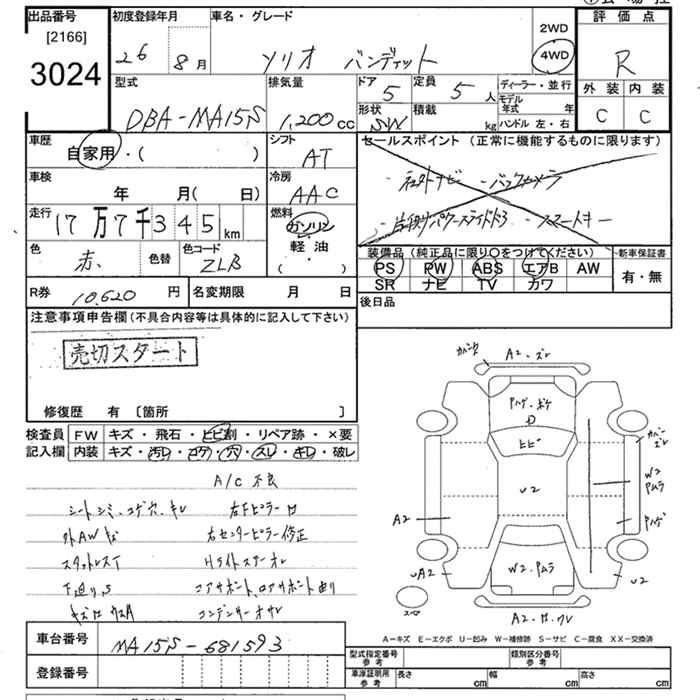 出品番号 初度登録年月 車名・グレード
[2166]
3024
26 8月 ソリオ バンディット
2WD
4WD
評価点
R
外装 内装
C C
型式 DBA-MA15S
排気量 1,200cc
ドア 5
定員 5人
形状 SW
積載 kg
ディーラー・並行
モデル年式 年
ハンドル 左・右
車歴 自家用・( )
シフト AT
車検 年 月( 日)
冷房 AAC
走行 17万7千345km
燃料 ガソリン
軽油
( ・ )
色 赤
色替
色コード ZLB
セールスポイント (正常に機能するものに限ります)
社外ナビ ・バックカメラ
・片側パワースライドドア ・スマートキー
装備品(純正品に限り○をつけてください) 新車保証書
PS PW ABS エアB AW 有・無
SR ナビ TV カワ
R券 10,620円 名変期限 月 日 後日品
注意事項申告欄(不具合内容等は具体的に記入して下さい)
売切スタート
修復歴 有 〔箇所 〕
検査員 FW キズ・飛石・ヒビ割・リペア跡・×要
記入欄 内装 キズ・汚レ・コゲ・穴・スレ・キレ・破レ
A/C 不良
シートシミ、コゲ穴、キレ 右Fピラー
外AWキズ 右センターピラー修正
スタットレスT Hライトステーズレ
下廻りS コアサポート、ロアサポート曲り
コンデンサーオサレ
A2・ズレ
ハガレ・ボケ
ヒビ
U2
W2・Pムラ
A2
UA2
W2
Pムラ
Pハゲ
U2
スペア
車台番号 MA15S-681593
登録番号
A−キズ E−エクボ U−凹み W−補修跡 S−サビ C−腐食 XX−交換済
型式指定番号 参考 類別区分番号 参考
車庫証明用 参考 長さ cm 幅 cm 高さ cm